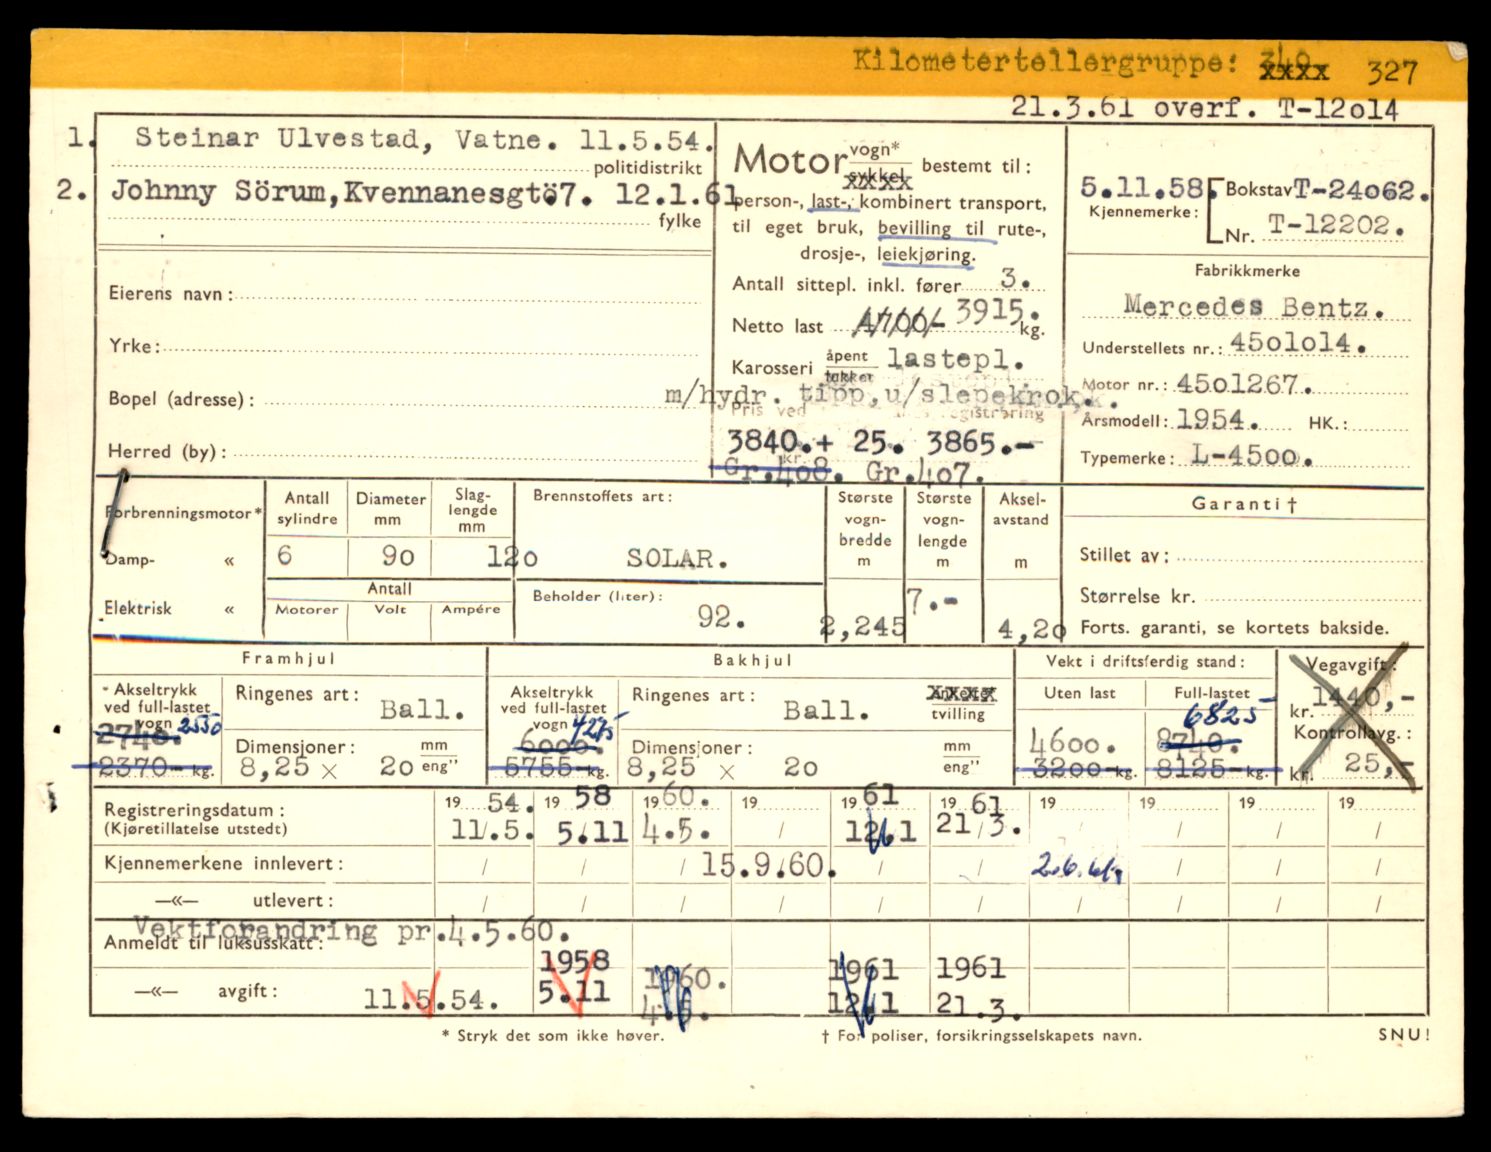 Kilometertellergruppe: 340 xxxx 327
21.3.61 overf. T-12o14
1. Steinar Ulvestad, Vatne. 11.5.54.
politidistrikt
2. Johnny Sörum,Kvennanesgtö7. 12.1.61
fylke
Eierens navn:
Yrke:
Bopel (adresse):
Herred (by):
Motor vogn* sykkel xxxx bestemt til:
person-, last-, kombinert transport,
til eget bruk, bevilling til rute-,
drosje-, leiekjøring.
Antall sittepl. inkl. fører 3.
Netto last 4700/- 3915. kg.
Karosseri åpent lukket lastepl.
m/hydr. tipp,u/slepekrok.
Pris ved registrering
3840.+ 25. 3865.-
kr.
Gr.4o8. Gr.4o7.
5.11.58. Bokstav T-24o62.
Kjennemerke: Nr. T-12202.
Fabrikkmerke
Mercedes Bentz.
Understellets nr.: 45o1o14.
Motor nr.: 45o1267.
Årsmodell: 1954. HK.:
Typemerke: L-45oo.
Forbrenningsmotor*
Damp- «
Elektrisk «
Antall sylindre Diameter mm Slag-lengde mm
6 9o 12o
Antall
Motorer Volt Ampére
Brennstoffets art:
SOLAR.
Beholder (liter):
92.
Største vogn-bredde m
2,245
Største vogn-lengde m
7.-
Aksel-avstand m
4,2o
Garanti †
Stillet av:
Størrelse kr.
Forts. garanti, se kortets bakside.
Framhjul
Akseltrykk ved full-lastet vogn
2740. 2550
2370- kg.
Ringenes art: Ball.
Dimensjoner: mm
8,25 × 20 eng"
Bakhjul
Akseltrykk ved full-lastet vogn 4275
6000.
5755- kg.
Ringenes art: Ball. xxxx tvilling
Dimensjoner: mm
8,25 × 20 eng"
Vekt i driftsferdig stand:
Uten last Full-lastet
6825
4600. 8740.
3200- kg. 8125- kg.
Vegavgift:
kr. 1440,-
Kontrollavg.:
kr. 25,-
Registreringsdatum: 19 54. 19 58 19 60. 19 19 61 19 61 19 19 19 19
(Kjøretillatelse utstedt) 11.5. 5.11 4.5. / 12.1 21/3. / / / /
Kjennemerkene innlevert: / / / 15.9.60. / / 2.6.61. / / /
—«— utlevert: / / / / / / / / / /
Vektforandring pr.4.5.60.
Anmeldt til luksusskatt:
1958 1960. 1961 1961
—«— avgift: 11.5.54. 5.11 4.5. 12.1 21.3.
* Stryk det som ikke høver.
† For poliser, forsikringsselskapets navn.
SNU!